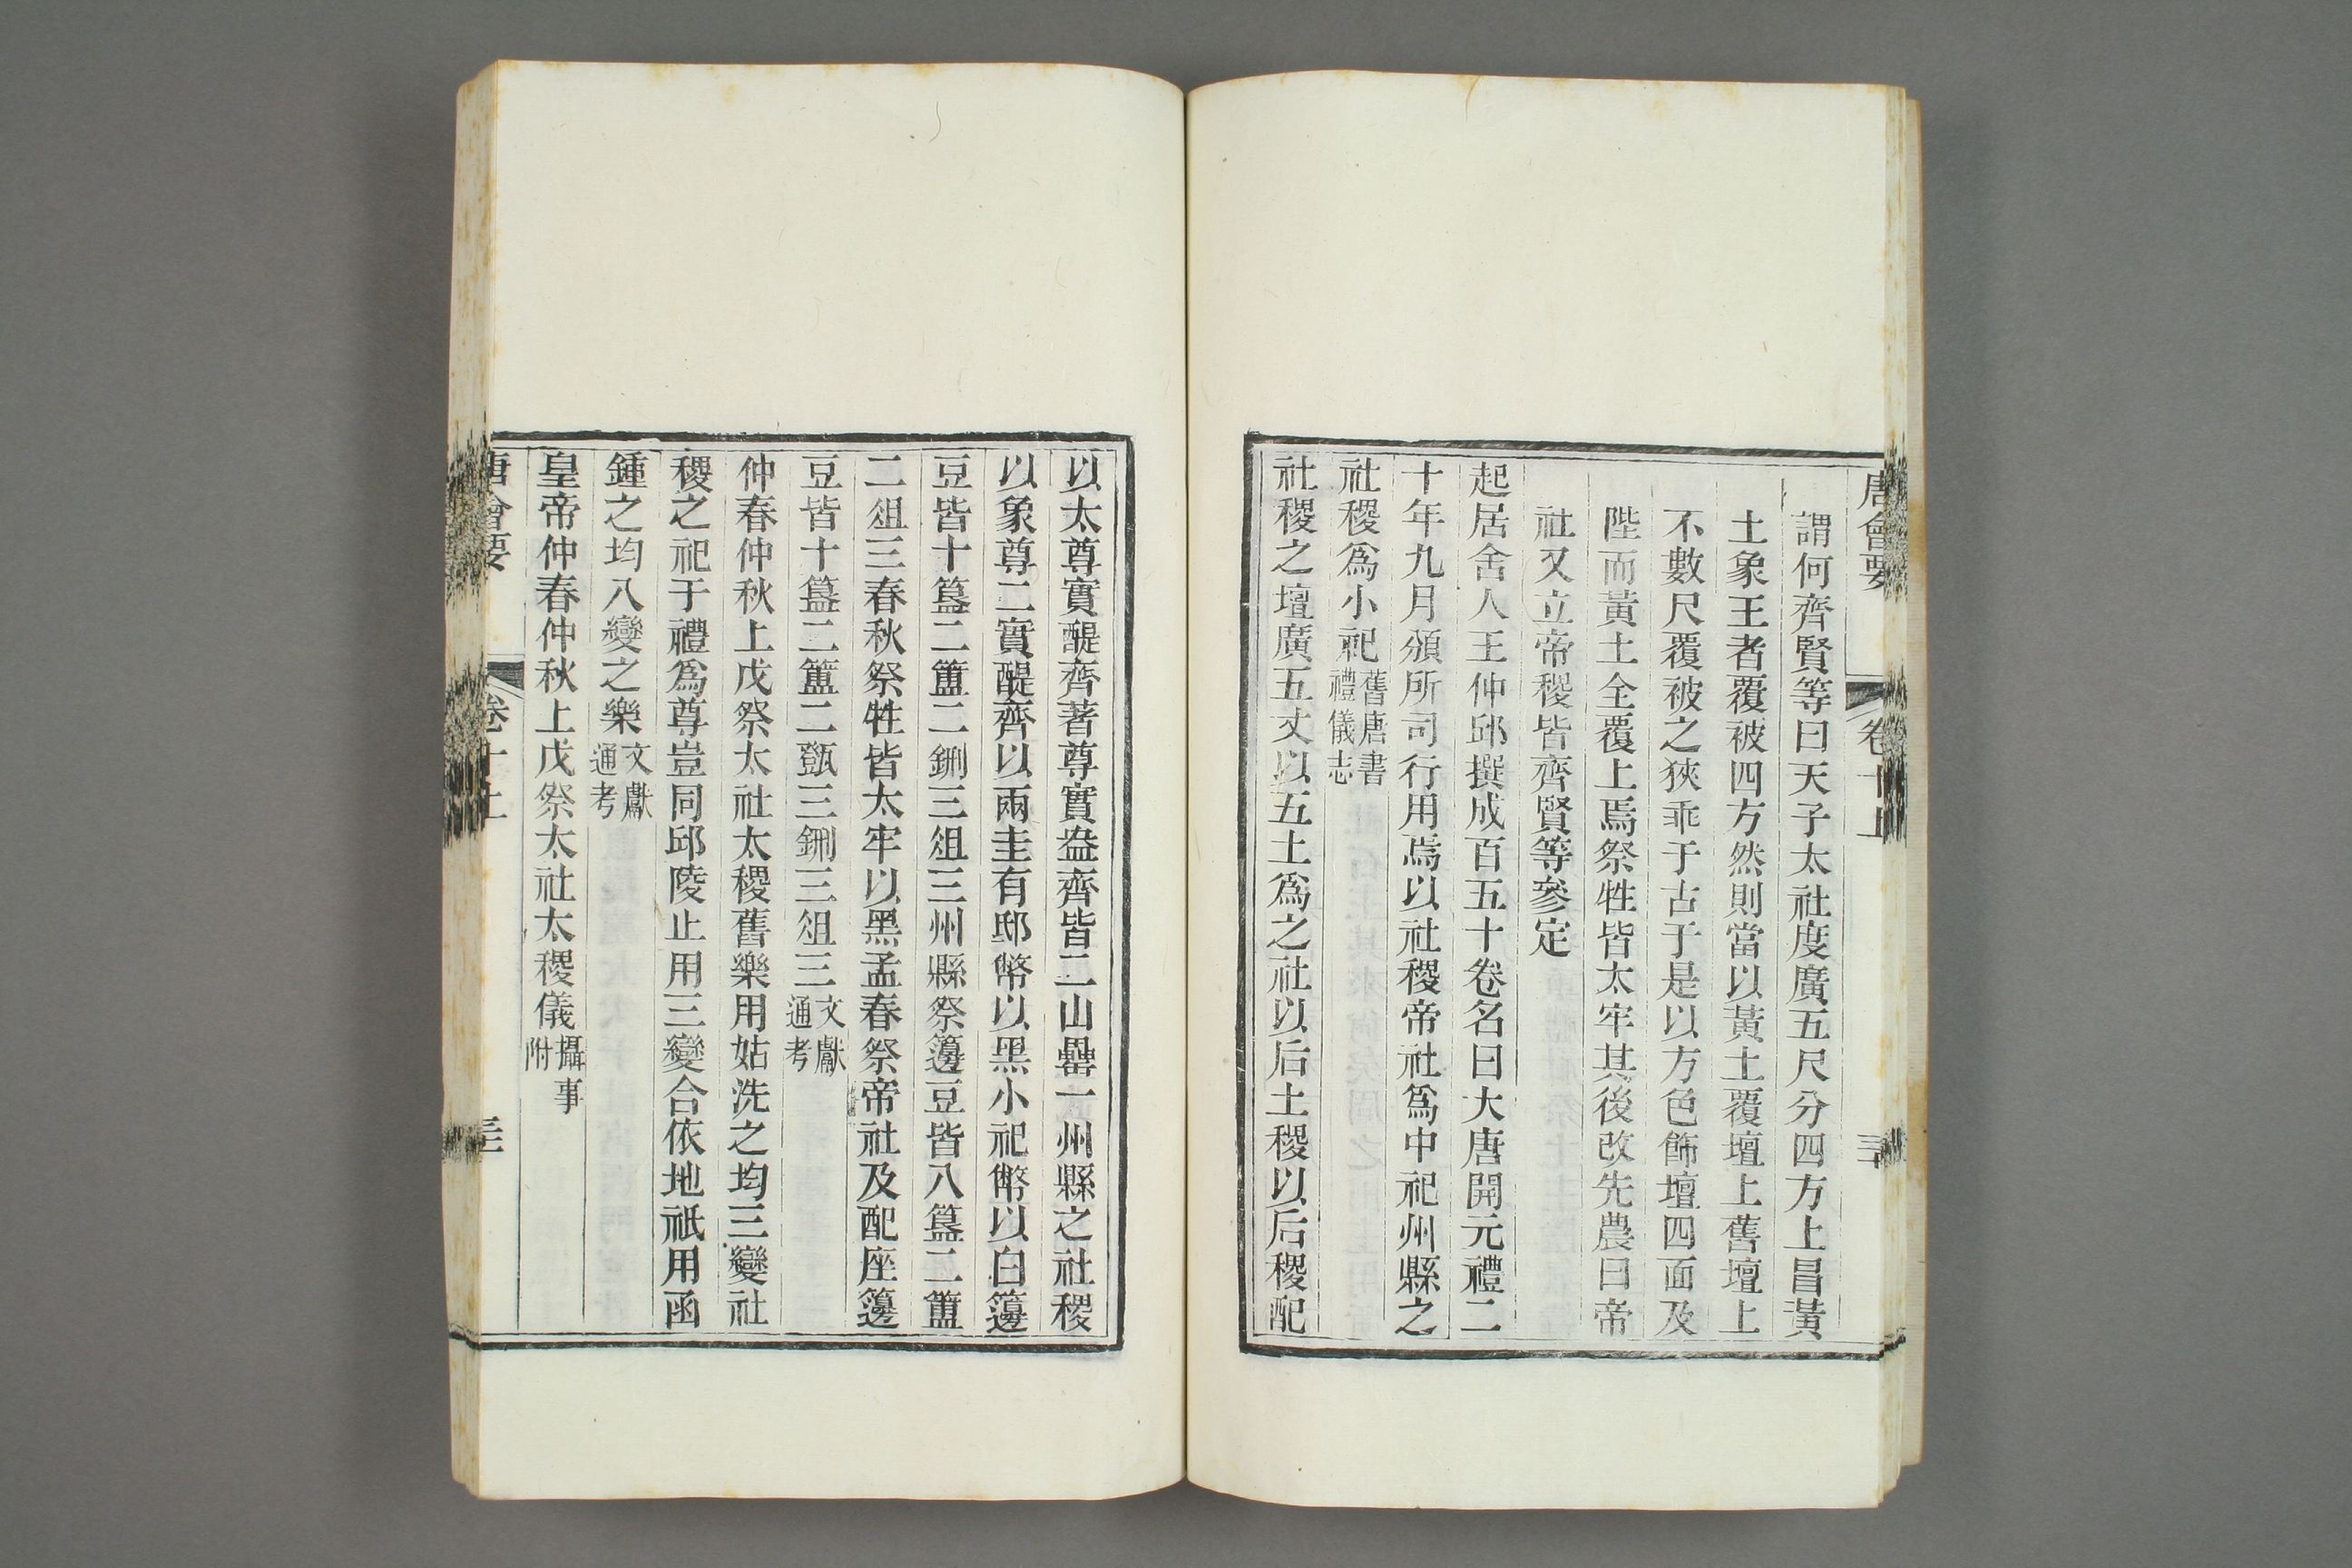 唐會要 卷十上 三十
謂何齊賢等曰天子太社度廣五尺分四方上昌黃
土象王者覆被四方然則當以黃土覆壇上舊壇上
不數尺覆被之狹乖于古于是以方色飾壇四面及
陛而黃土全覆上焉祭牲皆太牢其後改先農曰帝
社又立帝稷皆齊賢等參定
起居舍人王仲邱撰成百五十卷名曰大唐開元禮二
十年九月頒所司行用焉以社稷帝社爲中祀州縣之
社稷爲小祀舊唐書禮儀志
社稷之壇廣五丈以五土爲之社以后土稷以后稷配
以太尊實醍齊著尊實盎齊皆二山罍一州縣之社稷
以象尊二實醍齊以兩圭有邸幣以黑小祀幣以白籩
豆皆十簋二簠二鉶三俎三州縣祭籩豆皆八簋二簠
二俎三春秋祭牲皆太牢以黑孟春祭帝社及配座籩
豆皆十簋二簠二㽅三鉶三俎三文獻通考
仲春仲秋上戊祭太社太稷舊樂用姑洗之均三變社
稷之祀于禮爲尊豈同邱陵止用三變合依地祇用函
鍾之均八變之樂文獻通考
皇帝仲春仲秋上戊祭太社太稷儀攝事附
唐會要 卷十上